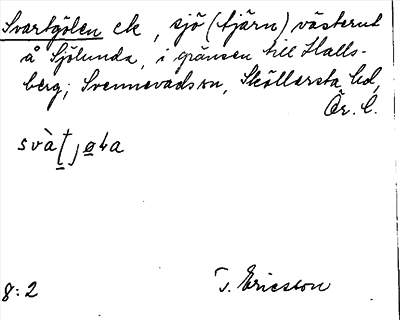 Svartgölen ek, sjö (tjärn) västerut
å Sjölunda, i gränsen till Halls-
berg; Svennevads sn, Sköllersta hd,
Ör. l.
8:2 T. Ericsson